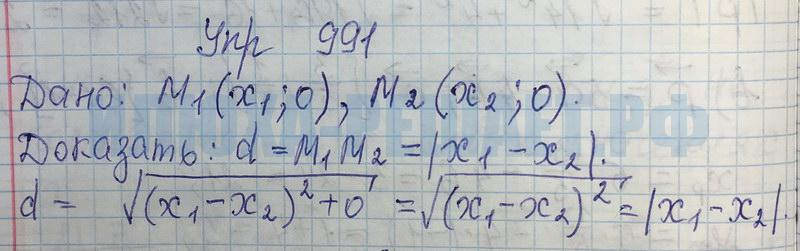 Упр 991
Дано: M₁(x₁;0), M₂(x₂;0).
Доказать: d = M₁M₂ = |x₁ - x₂|.
d = √(x₁-x₂)²+0 = √(x₁-x₂)² = |x₁-x₂|.